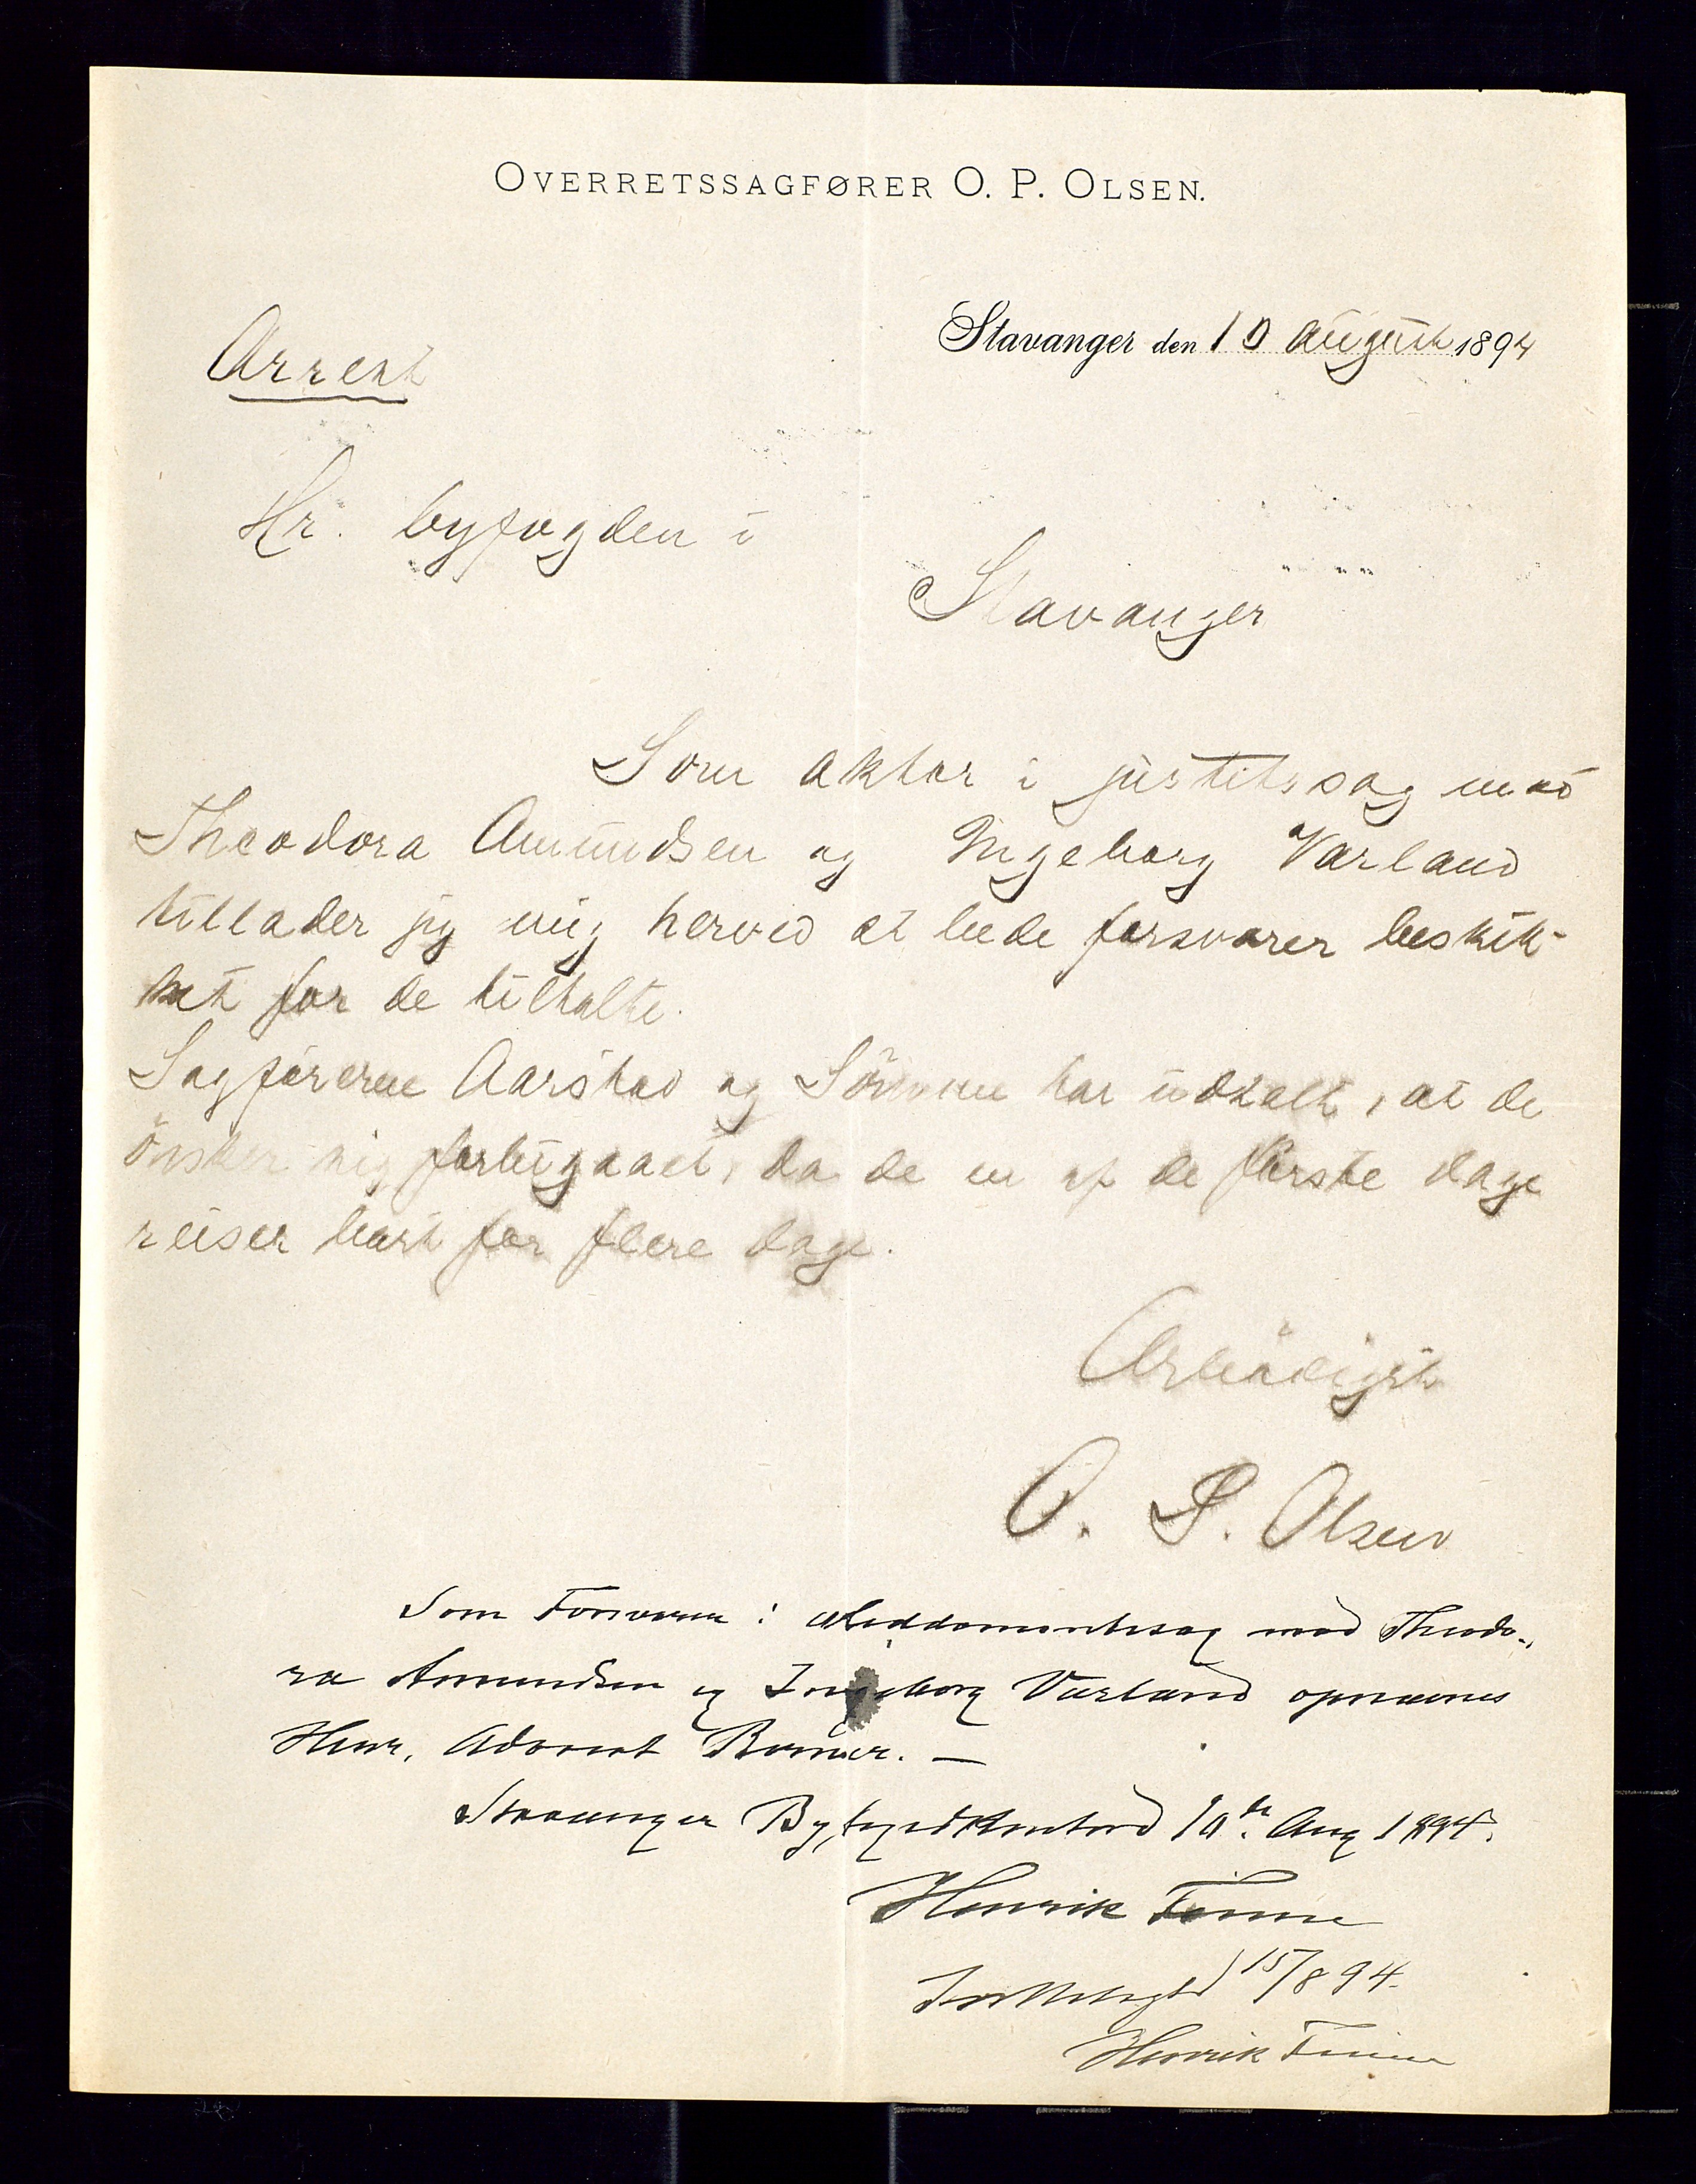 OVERRETSSAGFØRER O. P. OLSEN.
Stavanger den 10 august 1894
Arrest
Hr. byfogden i
Stavanger
Som aktor i justitssag mod
Theodora Amundsen og Ingeborg Varland
tillader jeg mig herved at bede forsvarer beskik-
ket for de tiltalte.
Sagførerne Aarstad og Sömme har udtalt, at de
önsker sig forbigaaet, da de en af de förste dage
reiser bort for flere dage.
Ærbödigst
O. P. Olsen
Som Forsvarer i Meddomsretssag mod Theodo-
ra Amundsen og Ingeborg Varland opnævnes
Herr. Advocat
Stavanger Byfogedkontor 10de Aug 1894.
Henrik Finne
Fremlagt 15/8 94.
Henrik Finne